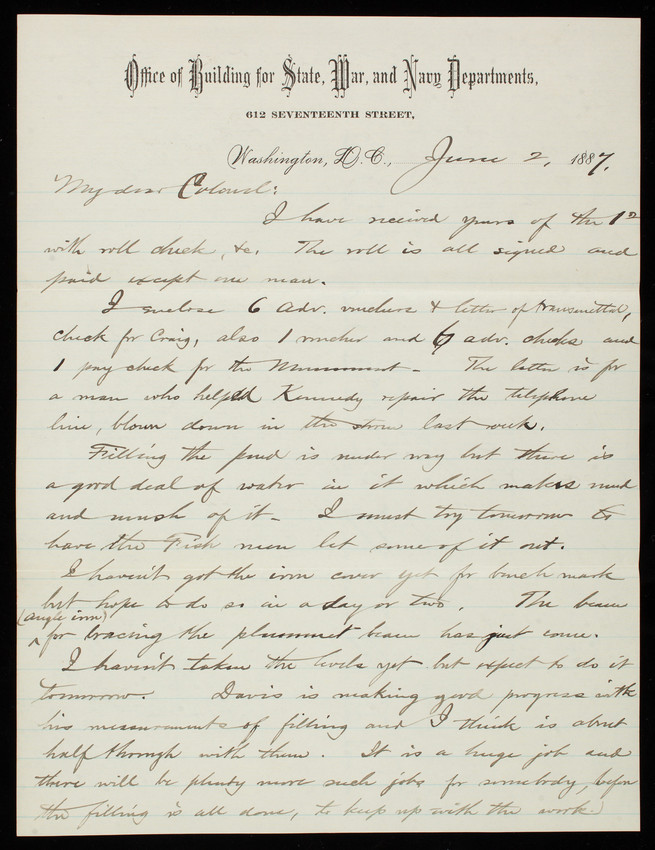 Office of Building for State, War, and Navy Departments,
612 SEVENTEENTH STREET,
Washington, D.C., June 2, 1887.
My dear Colonel:
I have received yours of the 1st
with roll check, &c. The roll is all signed and
paid except one man.
I enclose 6 adv. vouchers & letter of transmittal,
check for Craig, also 1 voucher and 6 adv. checks and
1 pay check for the Monument - The latter is for
a man who helped Kennedy repair the telephone
line, blown down in the storm last week.
Filling the pond is under way but there is
a good deal of water in it which makes mud
and mush of it - I must try tomorrow to
have the Fish men let some of it out.
I haven't got the iron cover yet for bench mark
but hope to do so in a day or two. The beam
(angle iron)
^ for bracing the plummet beam has just come.
I haven't taken the levels yet but expect to do it
tomorrow. Davis is making good progress with
his measurements of filling and I think is about
half through with them. It is a huge job and
there will be plenty more such jobs for somebody, before
the filling is all done, to keep up with the work.